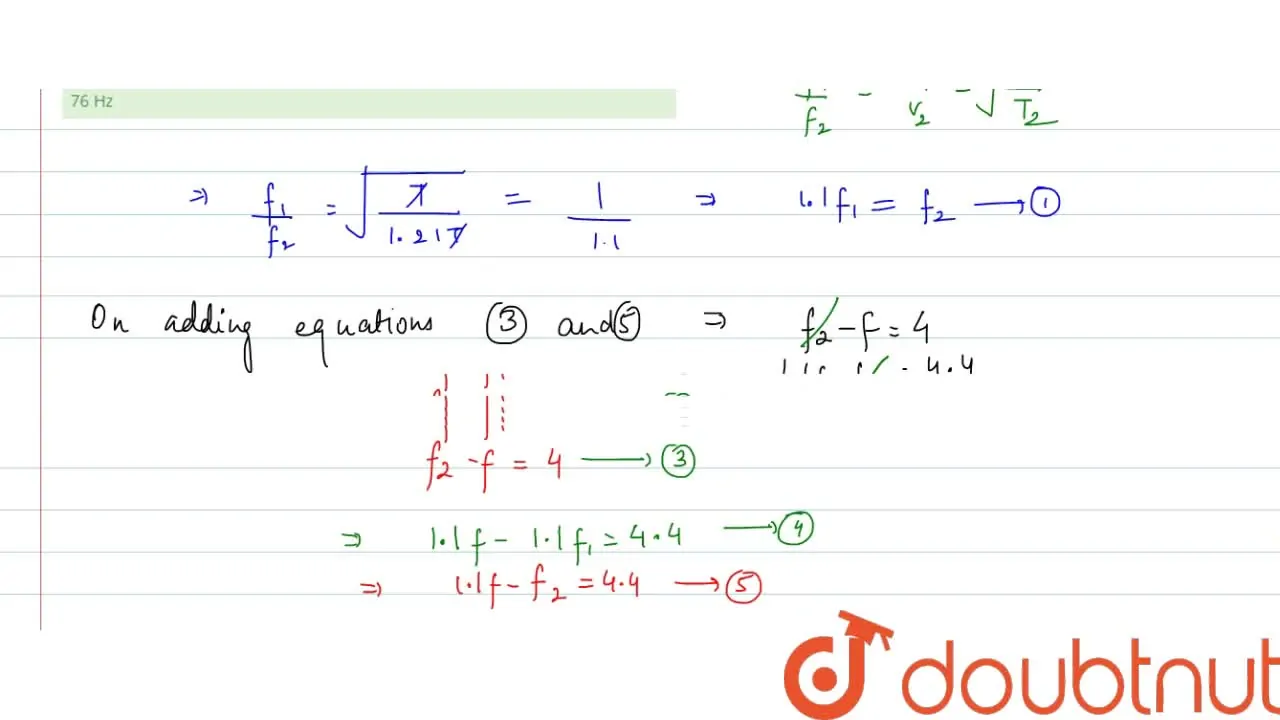 76 Hz
F2 v2 = √ T2
⇒ f1/f2 = √(T/1.21T) = 1/1.1 ⇒ 1.1f1 = f2 → ①
On adding equations ③ and ⑤ ⇒ f2 - f = 4
4.4
f2 - f = 4 → ③
⇒ 1.1f - 1.1f1 = 4.4 → ④
⇒ 1.1f - f2 = 4.4 → ⑤
doubtnut